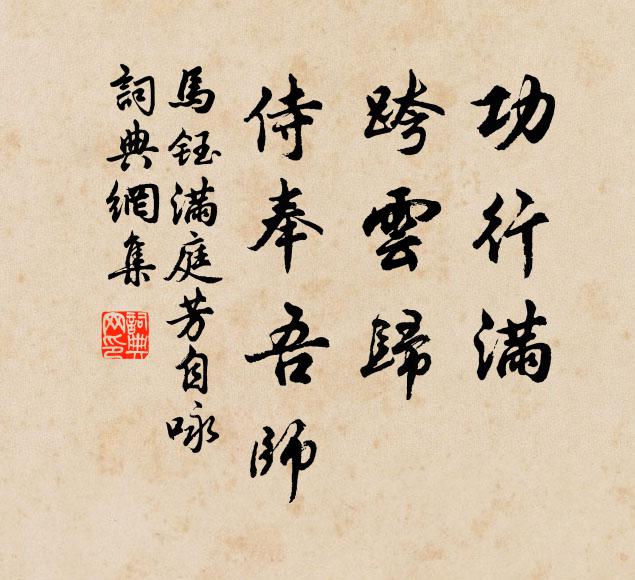 功行滿
跨雲歸
侍奉吾師
馬鈺滿庭芳自咏
詞典網集
詞典
网印